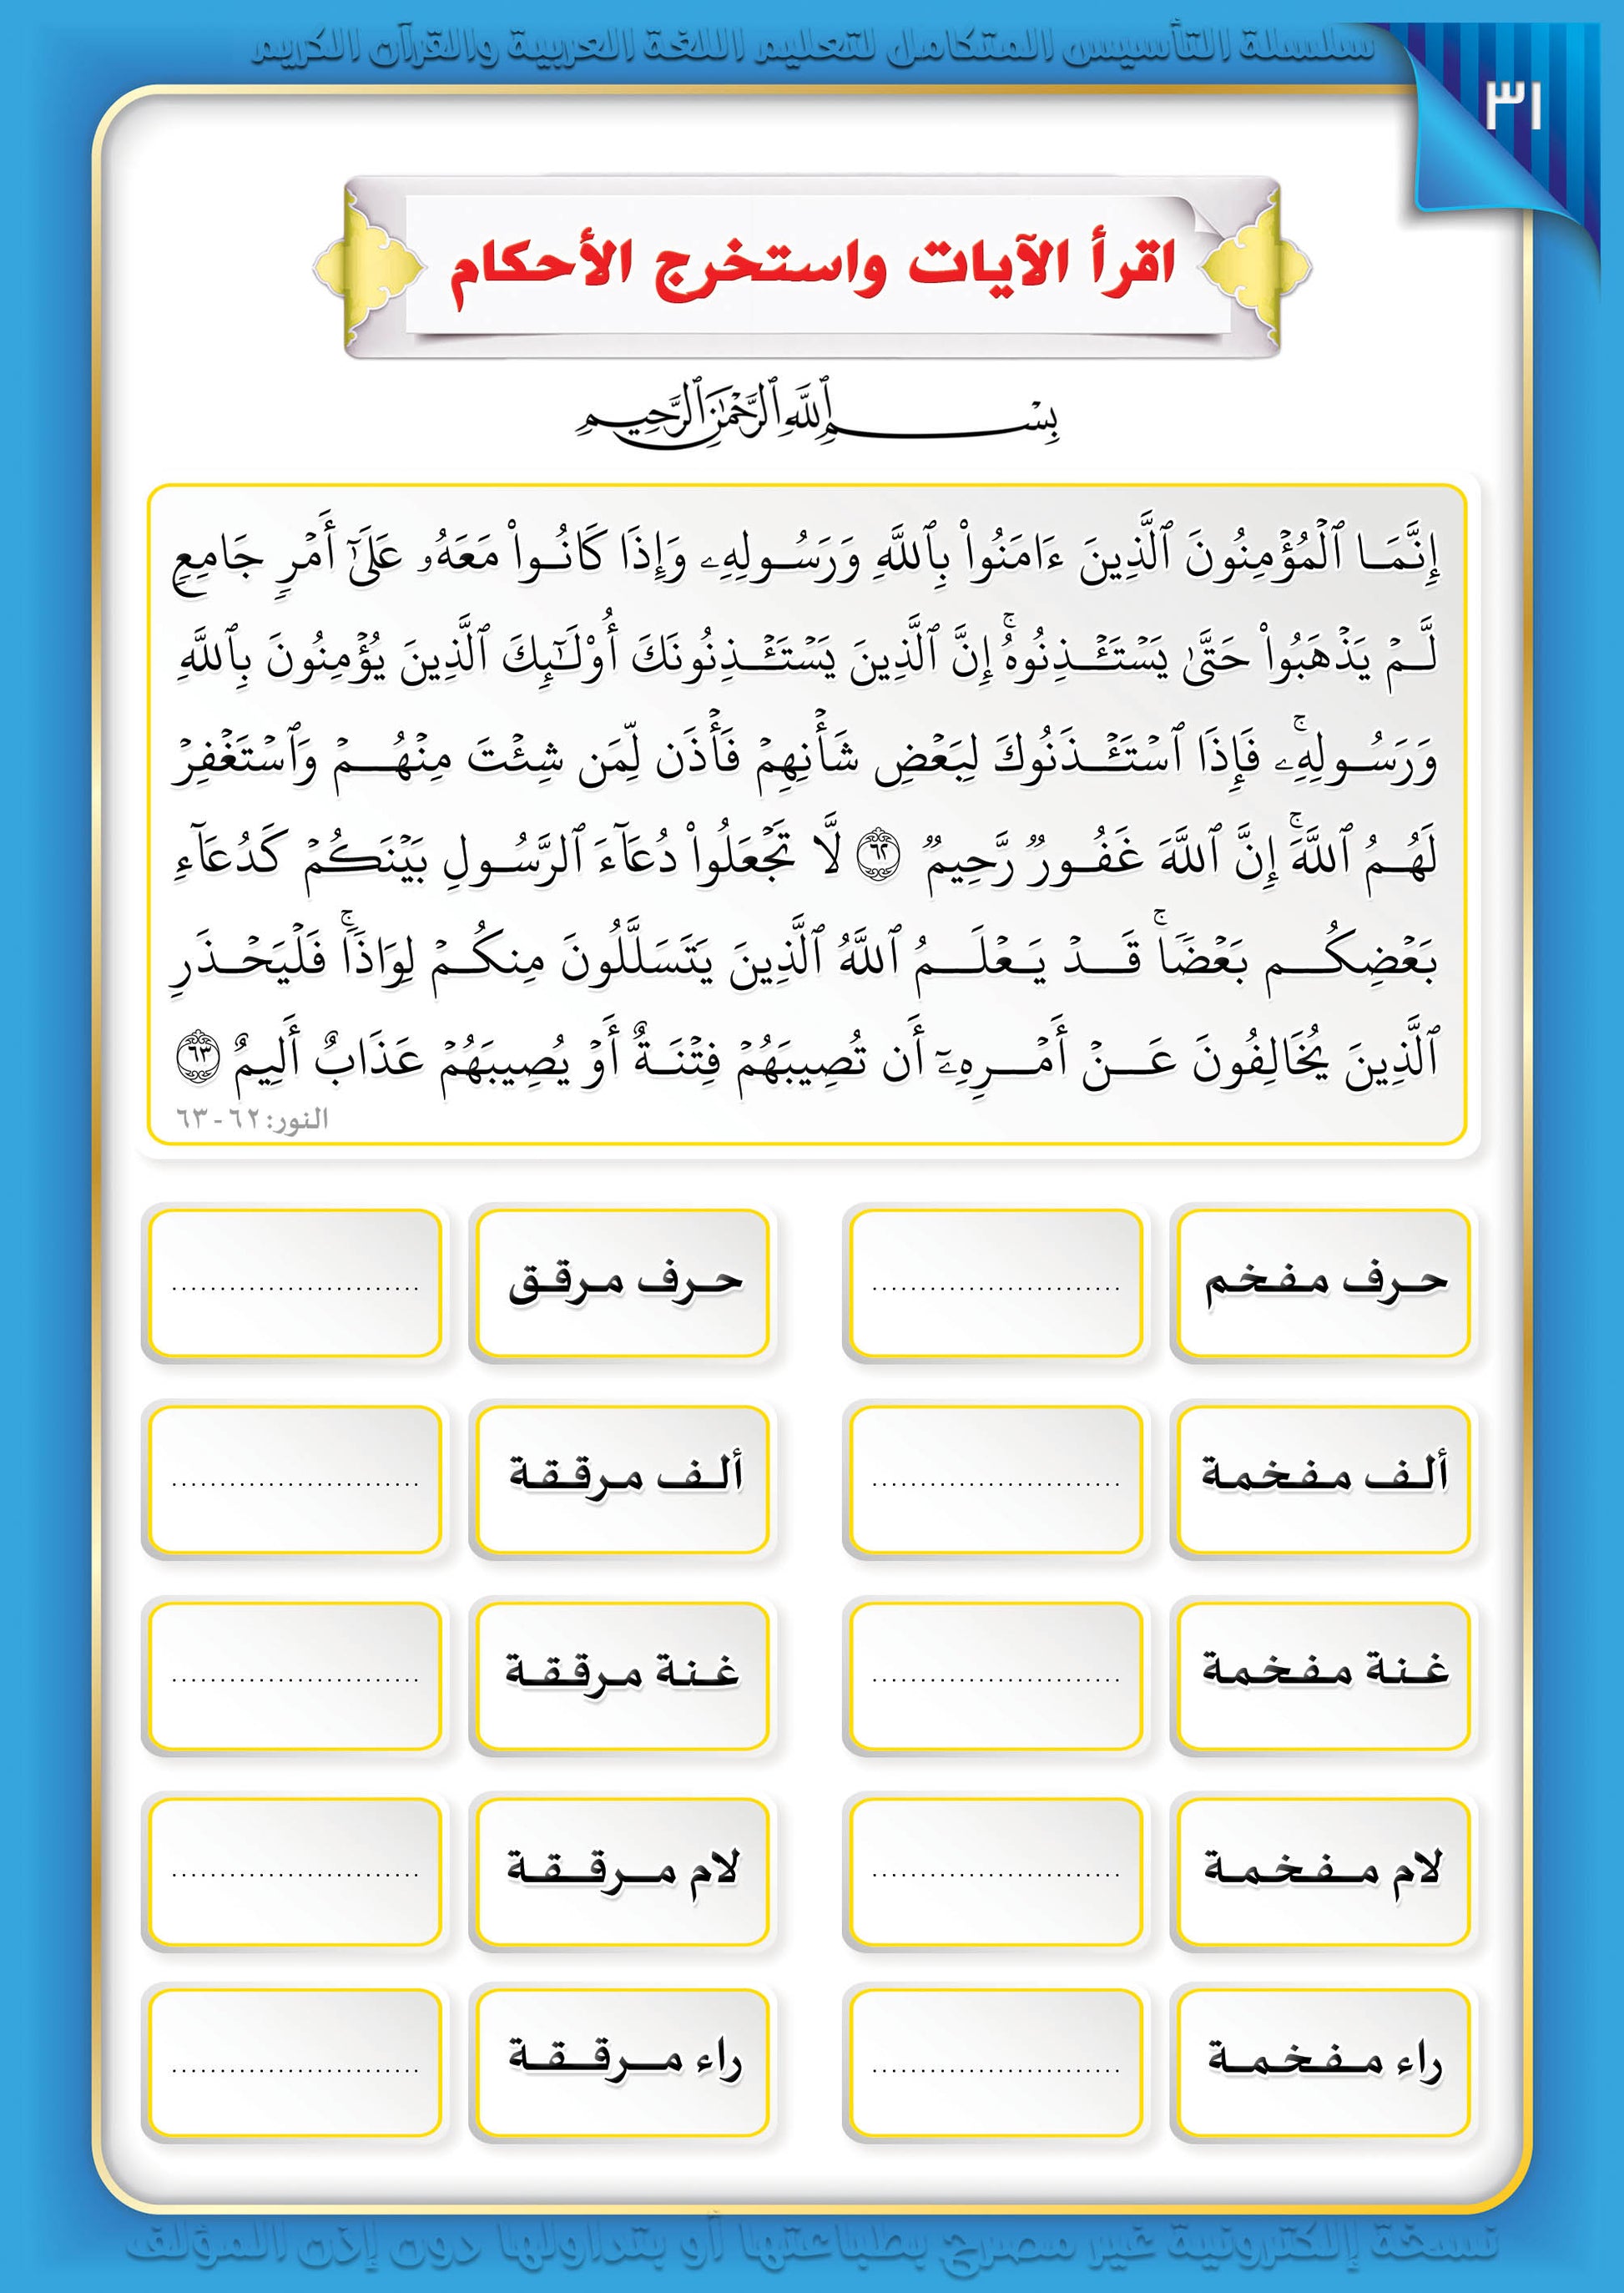 سلسلة التأسيس المتكامل لتعليم اللغة العربية والقرآن الكريم
٣١
اقرأ الآيات واستخرج الأحكام
بِسْمِ ٱللَّهِ ٱلرَّحْمَٰنِ ٱلرَّحِيمِ
إِنَّمَا ٱلْمُؤْمِنُونَ ٱلَّذِينَ ءَامَنُوا۟ بِٱللَّهِ وَرَسُولِهِۦ وَإِذَا كَانُوا۟ مَعَهُۥ عَلَىٰٓ أَمْرٍ جَامِعٍ
لَّمْ يَذْهَبُوا۟ حَتَّىٰ يَسْتَـْٔذِنُوهُ ۚ إِنَّ ٱلَّذِينَ يَسْتَـْٔذِنُونَكَ أُو۟لَـٰٓئِكَ ٱلَّذِينَ يُؤْمِنُونَ بِٱللَّهِ
وَرَسُولِهِۦ ۚ فَإِذَا ٱسْتَـْٔذَنُوكَ لِبَعْضِ شَأْنِهِمْ فَأْذَن لِّمَن شِئْتَ مِنْهُمْ وَٱسْتَغْفِرْ
لَهُمُ ٱللَّهَ ۚ إِنَّ ٱللَّهَ غَفُورٌ رَّحِيمٌ ٦٢ لَّا تَجْعَلُوا۟ دُعَآءَ ٱلرَّسُولِ بَيْنَكُمْ كَدُعَآءِ
بَعْضِكُم بَعْضًا ۚ قَدْ يَعْلَمُ ٱللَّهُ ٱلَّذِينَ يَتَسَلَّلُونَ مِنكُمْ لِوَاذًا ۚ فَلْيَحْذَرِ
ٱلَّذِينَ يُخَالِفُونَ عَنْ أَمْرِهِۦٓ أَن تُصِيبَهُمْ فِتْنَةٌ أَوْ يُصِيبَهُمْ عَذَابٌ أَلِيمٌ ٦٣
النور: ٦٢ - ٦٣
حرف مفخم ........................ حرف مرقق ........................
ألف مفخمة ........................ ألف مرققة ........................
غنة مفخمة ........................ غنة مرققة ........................
لام مفخمة ........................ لام مرققة ........................
راء مفخمة ........................ راء مرققة ........................
نسخة إلكترونية غير مصرح بطباعتها أو بتداولها دون إذن المؤلف